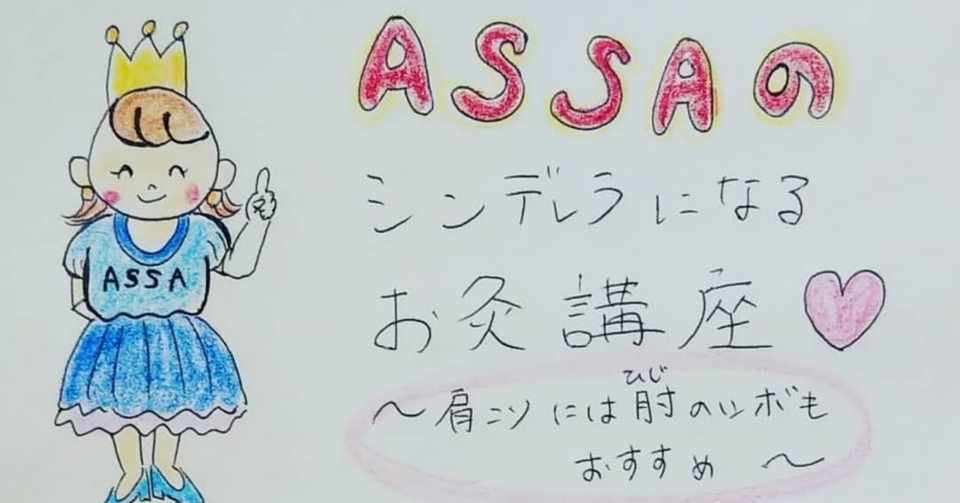 ASSAの
シンデレラになる
お灸講座
〜肩こりには肘のツボも
ひじ
おすすめ 〜
ASSA